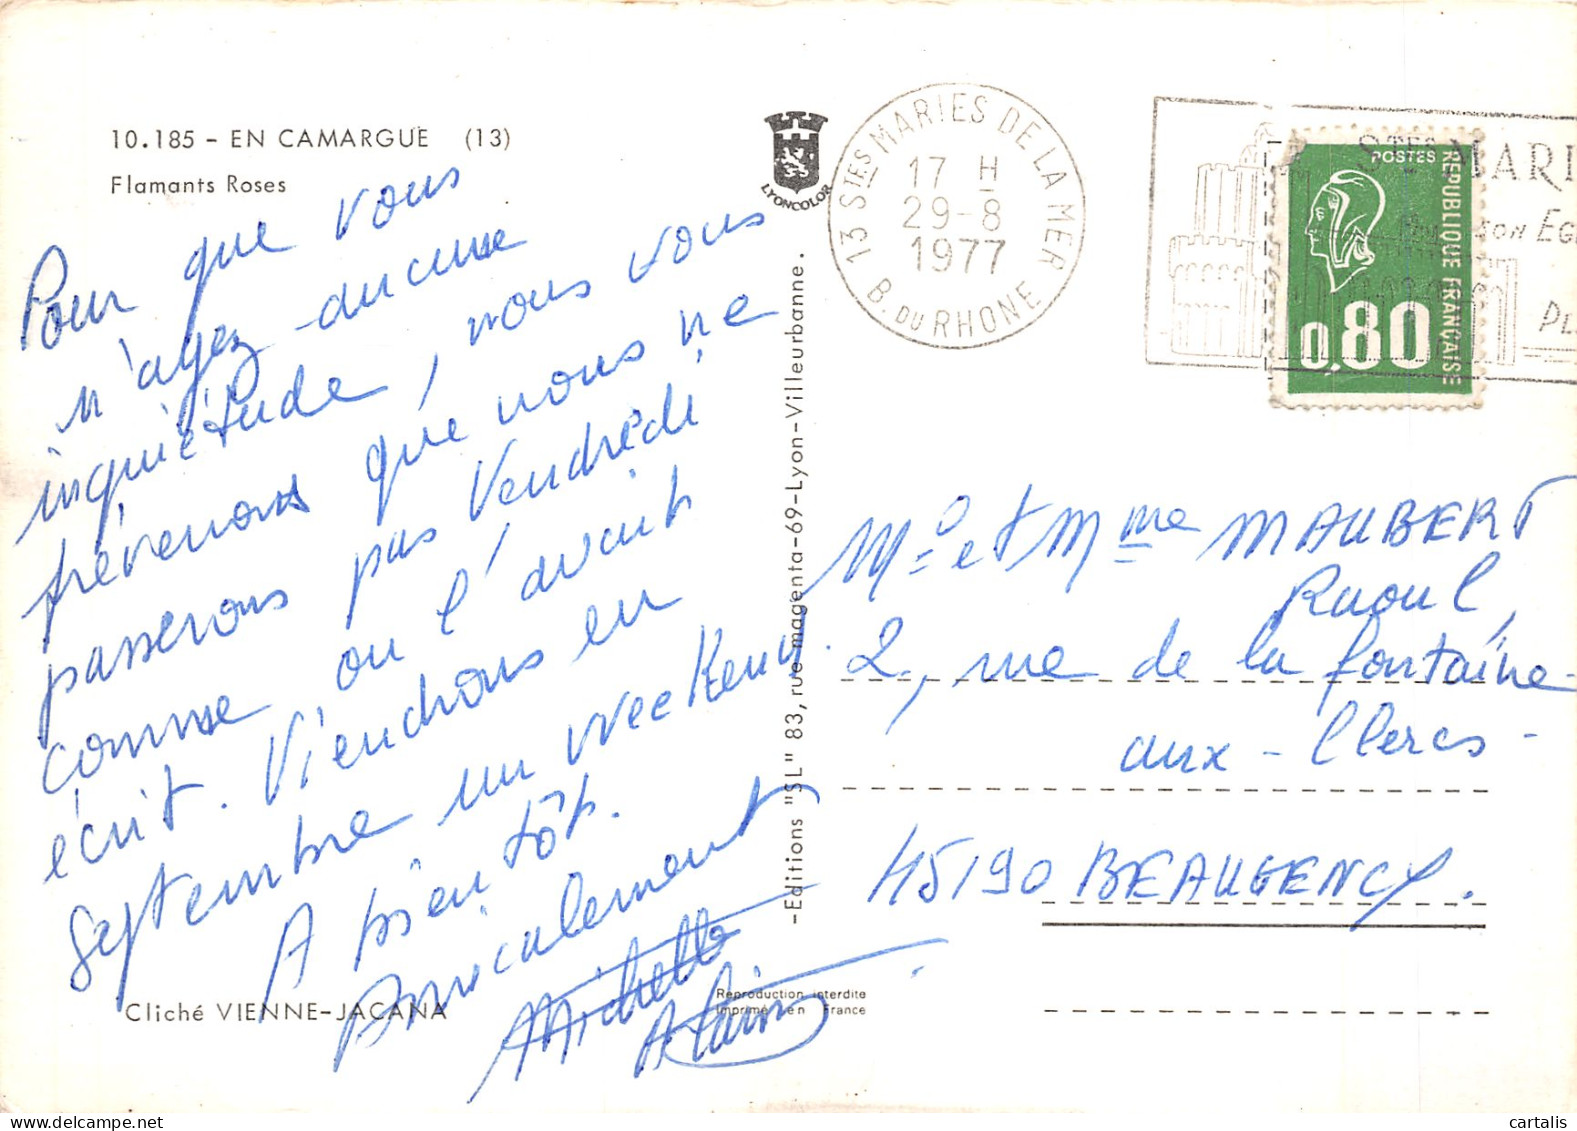 10.185 - EN CAMARGUE (13)
Flamants Roses
Pour que vous
n'ayez aucune
inquiétude, nous vous
prévenons que nous ne
passerons pas Vendredi
comme on l'avait
écrit. Viendrons en
Septembre un week end.
A bientôt.
Amicalement
Michelle
Alain
Cliché VIENNE-JACANA
LYONCOLOR
-Editions "SL" 83, rue magenta-69-Lyon-Villeurbanne.
Reproduction interdite
Imprimé en France
13 STES MARIES DE LA MER
17 H
29-8
1977
B. DU RHONE
STES MARI
SON EGL
POSTES
REPUBLIQUE FRANÇAISE
0.80
Mr et Mme MAUBERT
Raoul,
2, rue de la fontaine-
aux-Clercs-
45190 BEAUGENCY.
cartalis
delcampe.net